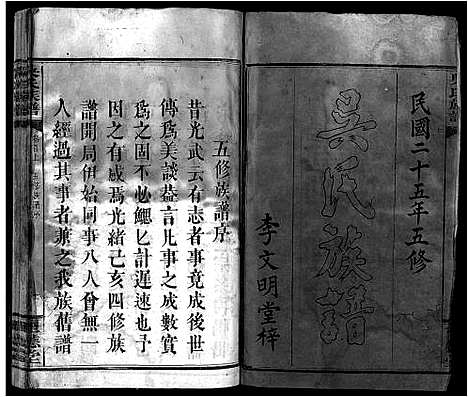 民國二十五年五修
吳氏族譜
李文明堂梓
五修族譜序
昔光武云有志者事竟成後世
傳爲美談蓋言凡事之成數實
爲之固不必鰓匕計遲速也予
因之有感焉光緒己亥四修族
譜開局伊始同事八人曾無一
人經過其事者兼之我族舊譜